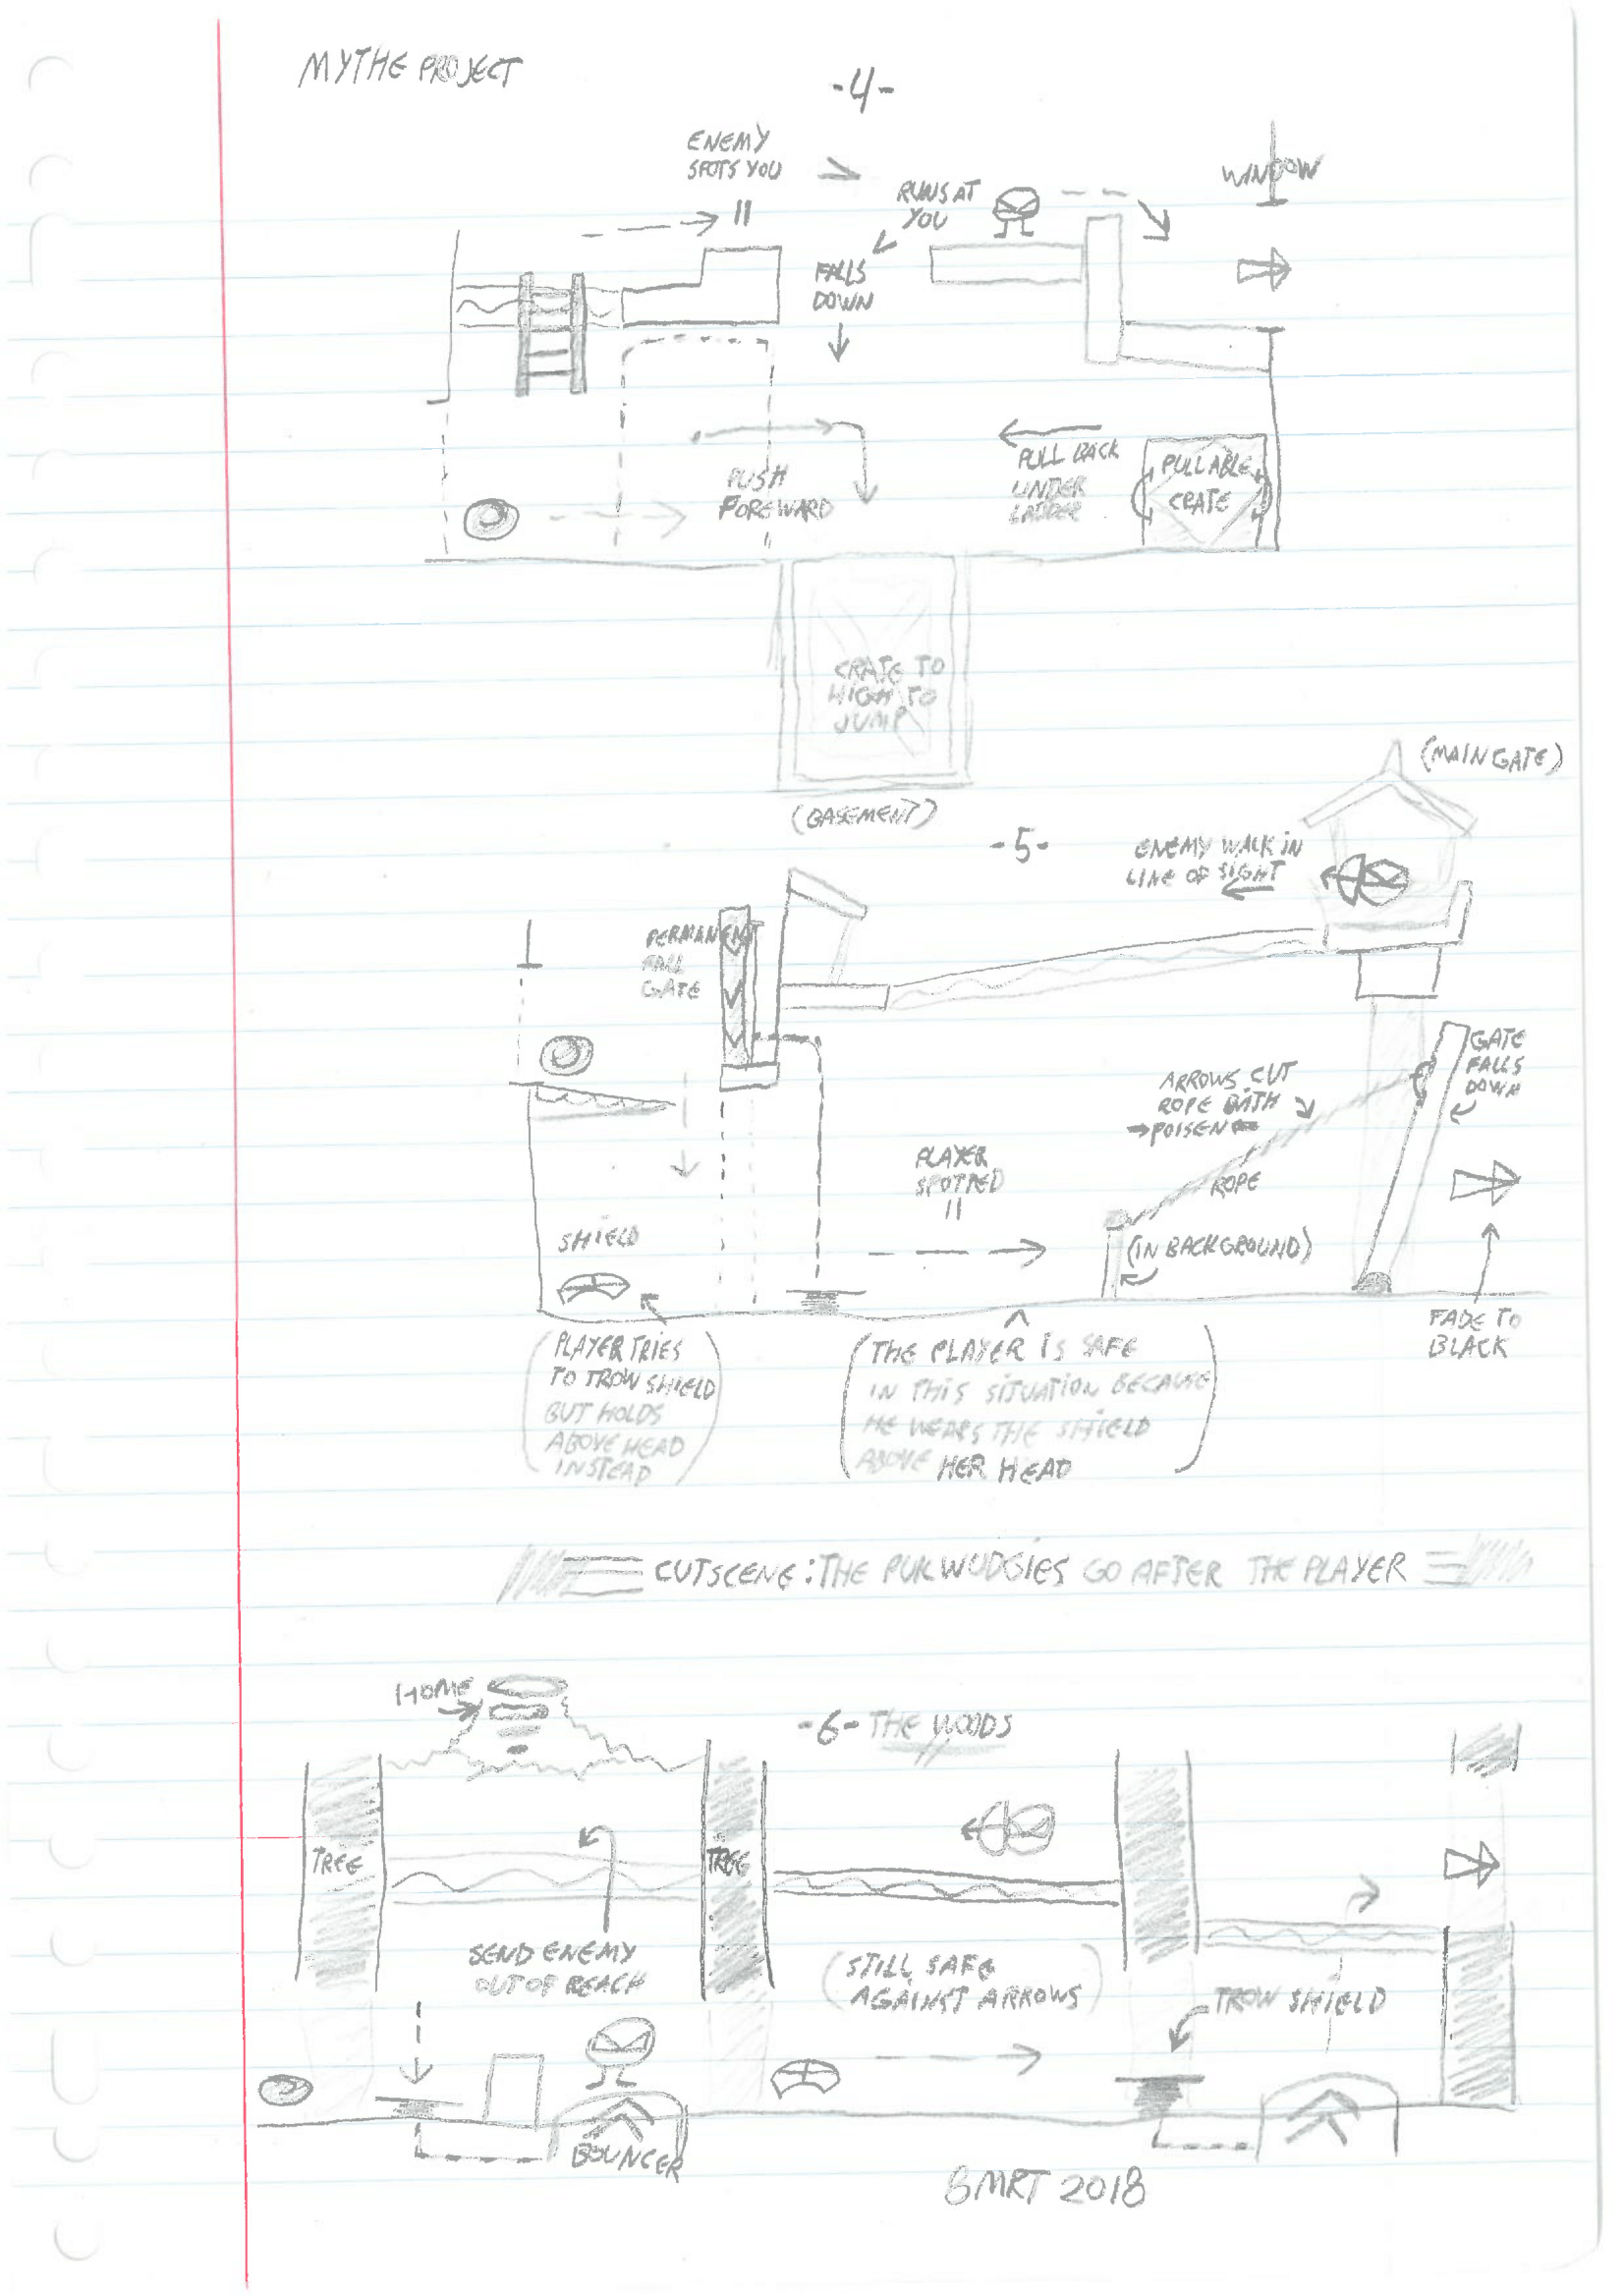 MYTHE PROJECT
-4-
ENEMY
SPOTS YOU
RUNS AT
YOU
WINDOW
FALLS
DOWN
PUSH
FOREWARD
PULL BACK
UNDER
LADDER
PULLABLE
CRATE
CRATE TO
HIGH TO
JUMP
(BASEMENT)
(MAIN GATE)
-5-
ENEMY WALK IN
LINE OF SIGHT
PERMANENT
FALL
GATE
GATE
FALLS
DOWN
ARROWS CUT
ROPE WITH
POISEN
PLAYER
SPOTTED
ROPE
SHIELD
(IN BACKGROUND)
FADE TO
BLACK
(PLAYER TRIES
TO TROW SHIELD
BUT HOLDS
ABOVE HEAD
INSTEAD)
(THE PLAYER IS SAFE
IN THIS SITUATION BECAUSE
HE WEARS THE SHIELD
ABOVE HER HEAD)
CUTSCENE: THE PUKWUDGIES GO AFTER THE PLAYER
HOME
-6- THE WOODS
TREE
TREE
SEND ENEMY
OUT OF REACH
(STILL SAFE
AGAINST ARROWS)
TROW SHIELD
BOUNCER
BMRT 2018